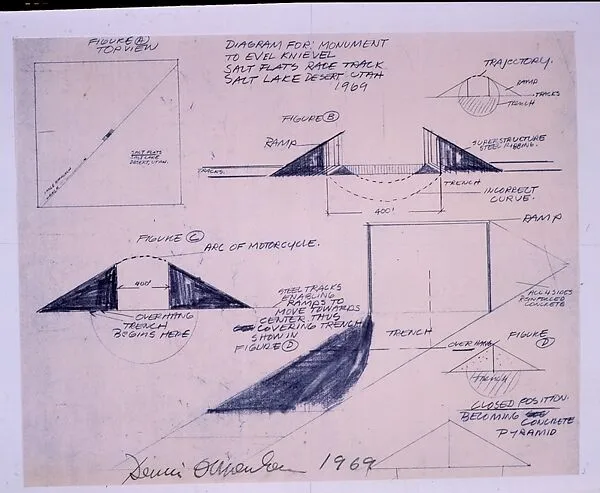 FIGURE A
TOP VIEW
DIAGRAM FOR: MONUMENT
TO EVEL KNIEVEL
SALT FLATS RACE TRACK
SALT LAKE DESERT UTAH
1969
TRAJECTORY.
RAMP
TRACKS
TRENCH
SALT FLATS
SALT LAKE
DESERT, UTAH.
TRACK
FIGURE B
RAMP
SUPERSTRUCTURE
STEEL RIBBING.
TRACKS
TRENCH
INCORRECT
CURVE.
400'
RAMP
FIGURE C
ARC OF MOTORCYCLE.
400'
OVERHANG
TRENCH
BEGINS HERE
STEEL TRACKS
ENABLING
RAMPS TO
MOVE TOWARDS
CENTER THUS
COVERING TRENCH
SHOW IN
FIGURE D
TRENCH
ALL 4 SIDES
REINFORCED
CONCRETE
OVERHANG
FIGURE
D
TRENCH
CLOSED POSITION.
BECOMING CONCRETE
PYRAMID
Dennis Oppenheim 1969